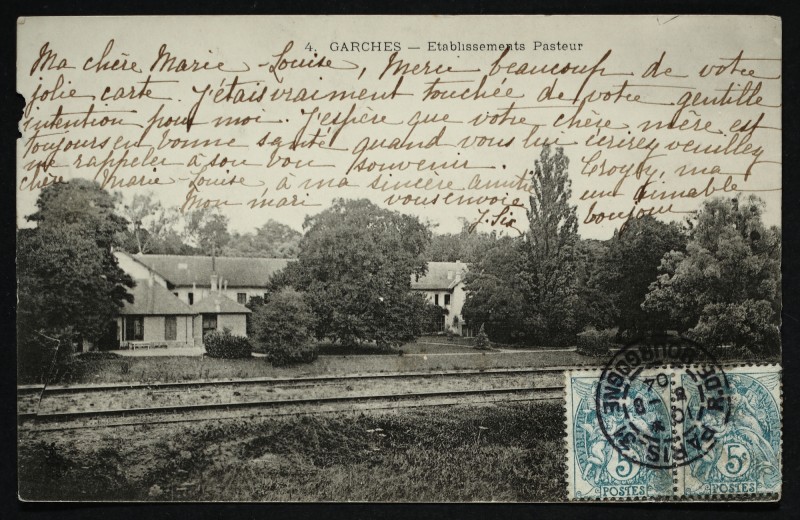 4. GARCHES — Etablissements Pasteur
Ma chère Marie-Louise, Merci beaucoup de votre
jolie carte. J'étais vraiment touchée de votre gentille
intention pour moi. J'espère que votre chère mère est
toujours en bonne santé quand vous lui écrirez veuillez
me rappeler à son bon souvenir. Croyez, ma
chère Marie-Louise, à ma sincère amitié
Mon mari vous envoie un aimable
bonjour
PARIS R. DE BOURGOGNE
04
5c POSTES 5c POSTES